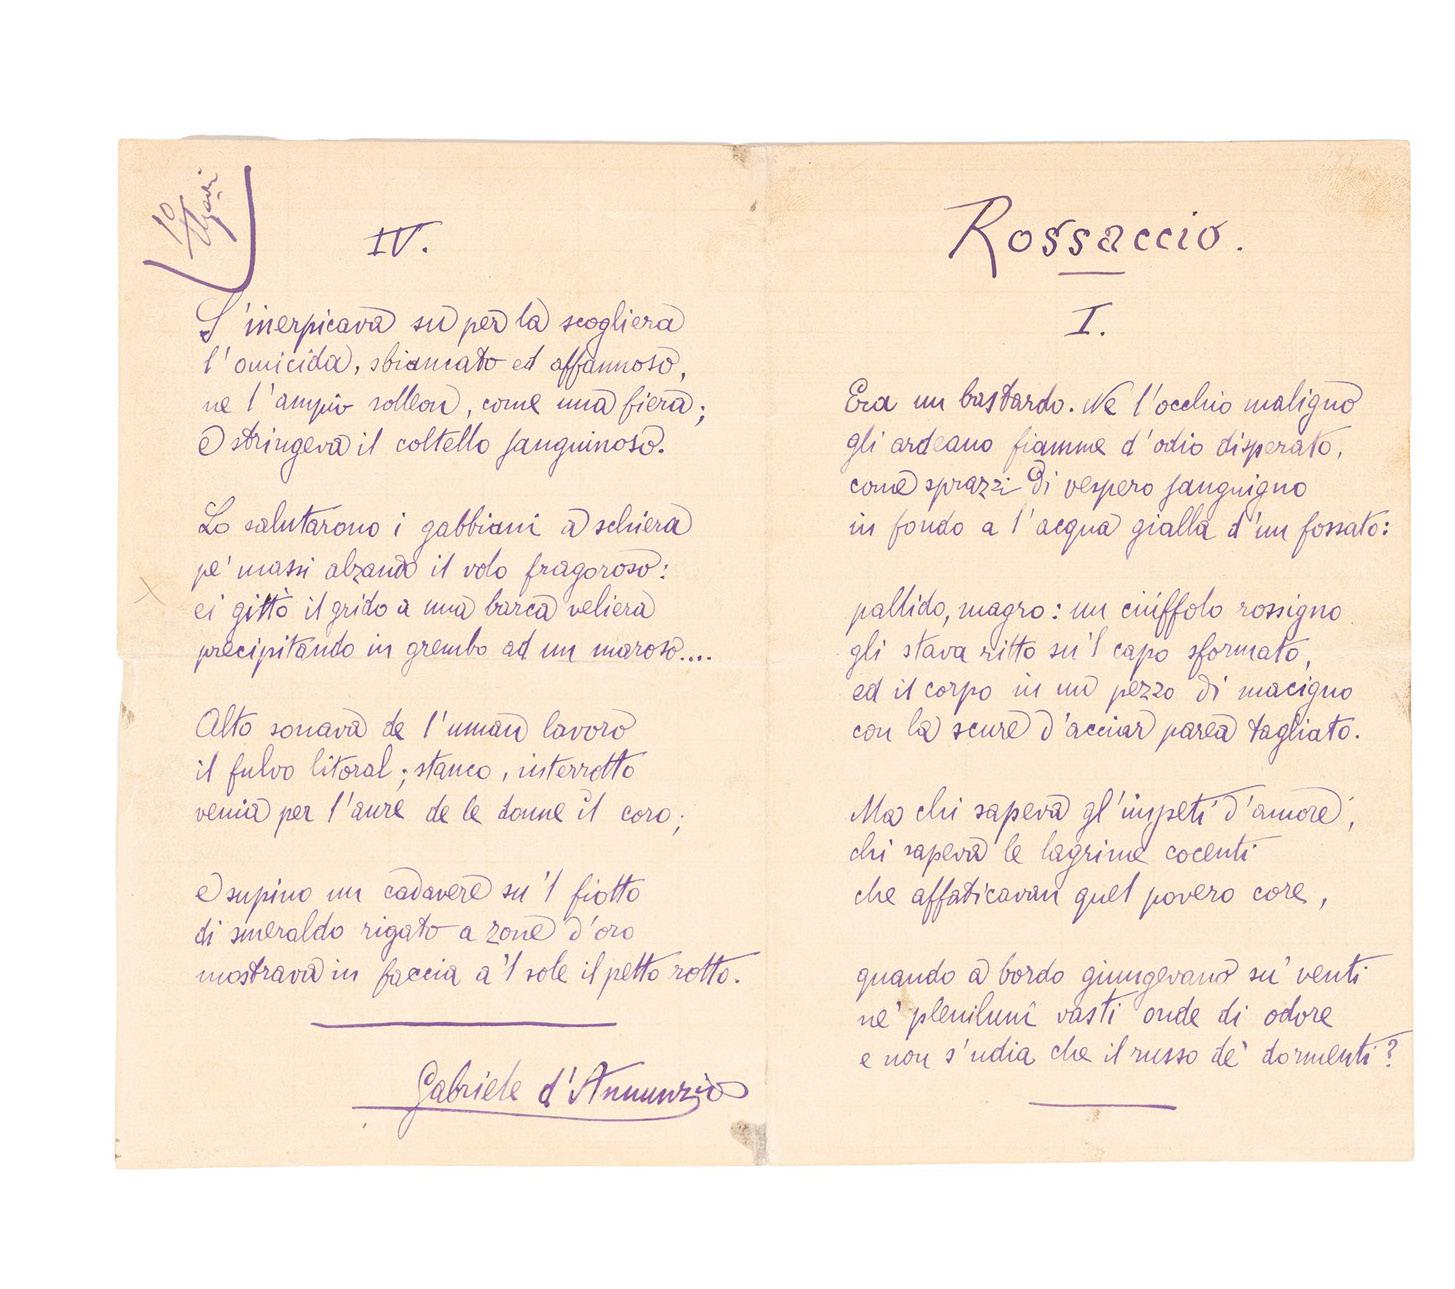 IV.
S'inerpicava su per la scogliera
l'omicida, sbiancato ed affannoso,
ne l'ampio solleon, come una fiera;
e stringeva il coltello sanguinoso.
Lo salutarono i gabbiani a schiera
pe' massi alzando il volo fragoroso:
ei gittò il grido a una barca veliera
precipitando in grembo ad un maroso....
Alto sonava de l'uman lavoro
il fulvo litoral; stanco, interrotto
venia per l'aure de le donne il coro;
e supino un cadavere su 'l fiotto
di smeraldo rigato a zone d'oro
mostrava in faccia a 'l sole il petto rotto.
Gabriele d'Annunzio
Rossaccio.
I.
Era un bastardo. Ne l'occhio maligno
gli ardeano fiamme d'odio disperato,
come sprazzi di vespero sanguigno
in fondo a l'acqua gialla d'un fossato:
pallido, magro: un ciúffolo rossigno
gli stava ritto su'l capo sformato,
ed il corpo in un pezzo di macigno
con la scure d'acciar parea tagliato.
Ma chi sapeva gl'impeti d'amore,
chi sapeva le lagrime cocenti
che affaticavan quel povero core,
quando a bordo giungevano su' venti
ne' plenilunî vasti onde di odore
e non s'udia che il russo de' dormenti?